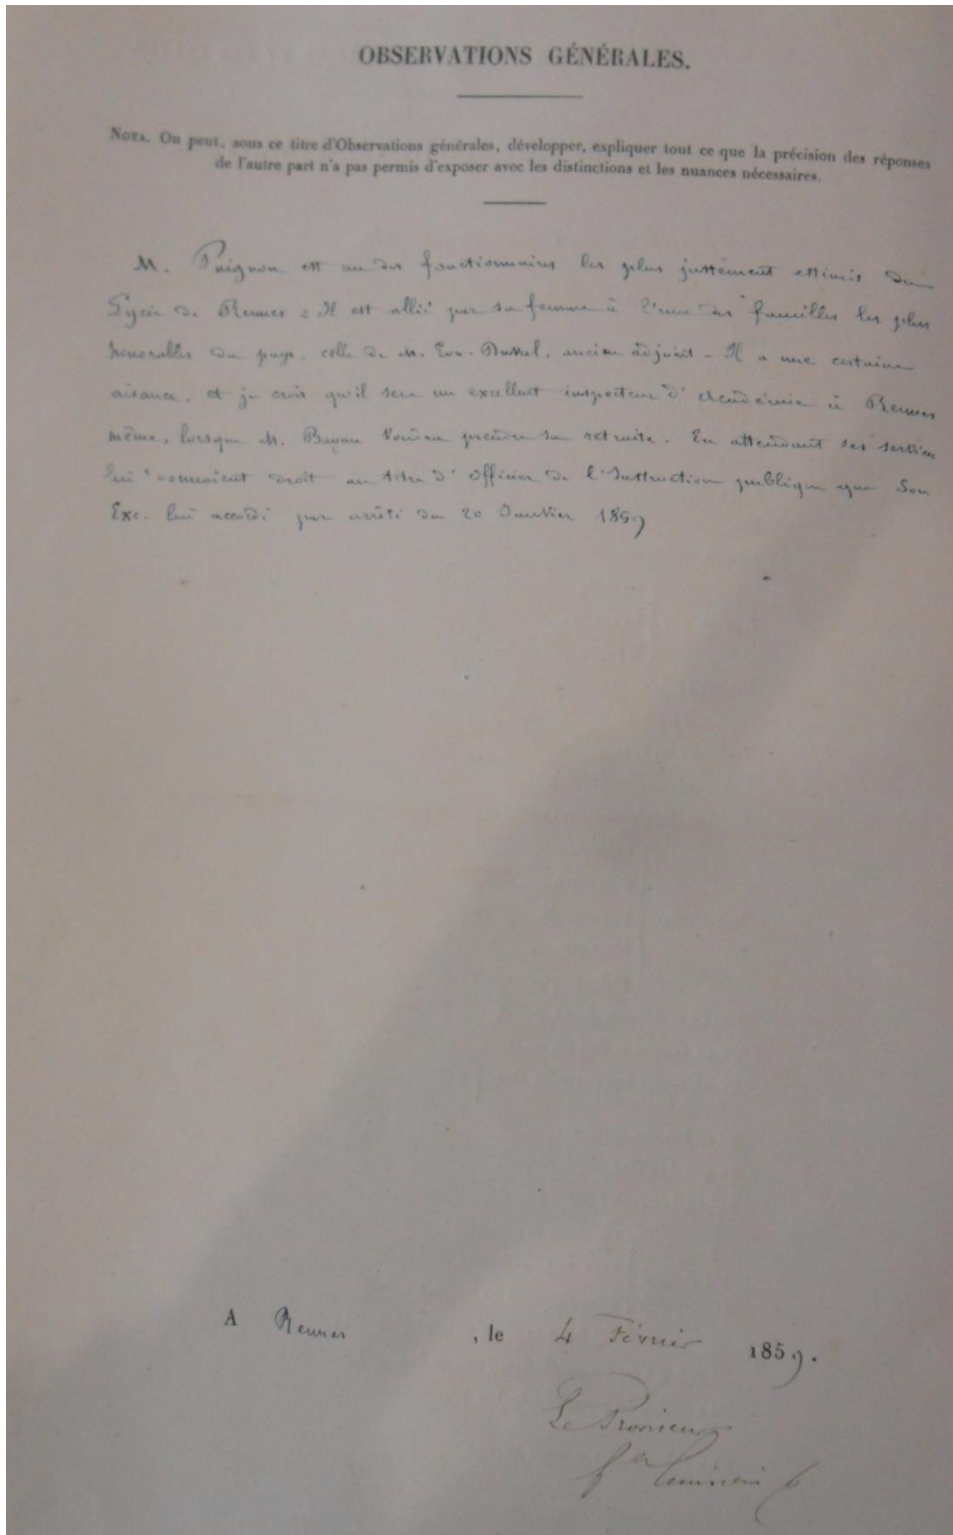 OBSERVATIONS GÉNÉRALES.
NOTA. On peut, sous ce titre d'Observations générales, développer, expliquer tout ce que la précision des réponses
de l'autre part n'a pas permis d'exposer avec les distinctions et les nuances nécessaires.
M. Paignon est un des fonctionnaires les plus justement estimés du
Lycée de Rennes = Il est allié par sa femme à l'une des familles les plus
honorables du pays, celle de M. ancien adjoint - Il a une certaine
aisance, et je crois qu'il sera un excellent inspecteur d'Académie à Rennes
même, lorsque M. voudra prendre sa retraite. En attendant ses services
lui donnaient droit au titre d'Officier de l'Instruction publique que Son
Exc. lui accordé par arrêté du 20 Janvier 1859
A Rennes , le 4 Février 1859.
Le Proviseur